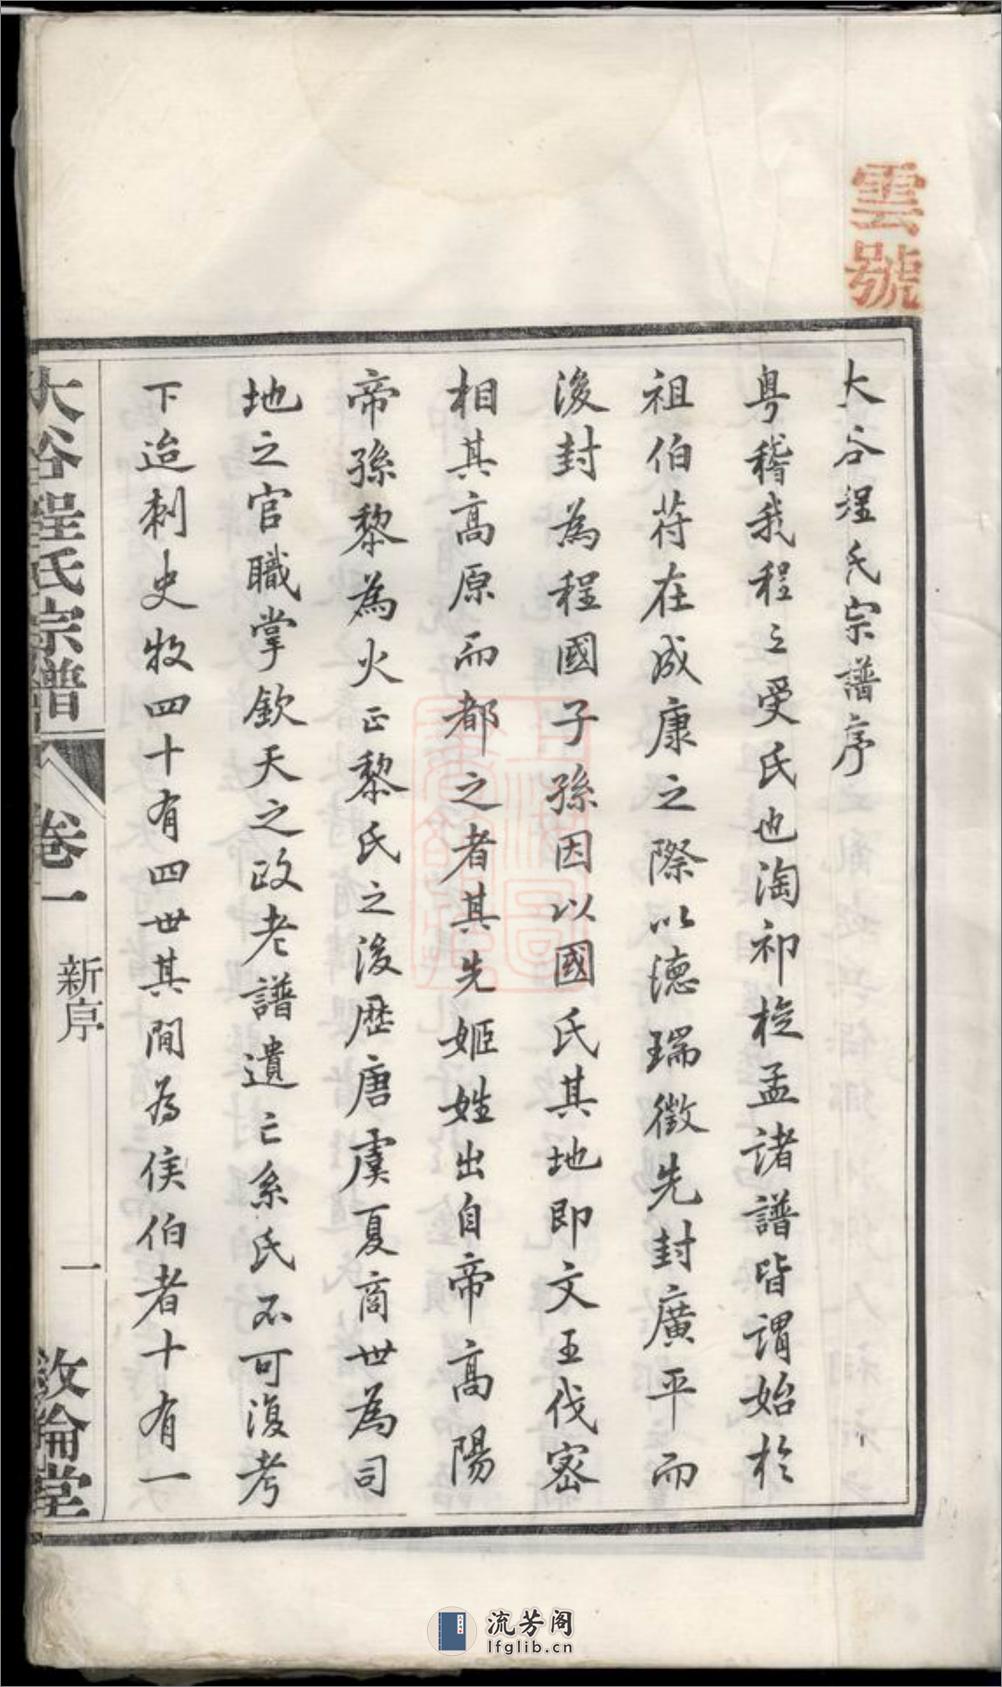 雲號
大谷程氏宗譜序
粤稽我程之受氏也淘祁棇孟諸譜皆謂始於
祖伯苻在成康之際以德瑞徵先封廣平而
後封為程國子孫因以國氏其地即文王伐密
相其高原而都之者其先姬姓出自帝高陽
帝孫黎為火正黎氏之後歷唐虞夏商世為司
地之官職掌欽天之政老譜遺亡系氏不可復考
下迨刺史牧四十有四世其間為侯伯者十有一
大谷程氏宗譜 卷一 新序 一 敘倫堂
流芳阁
lfglib.cn